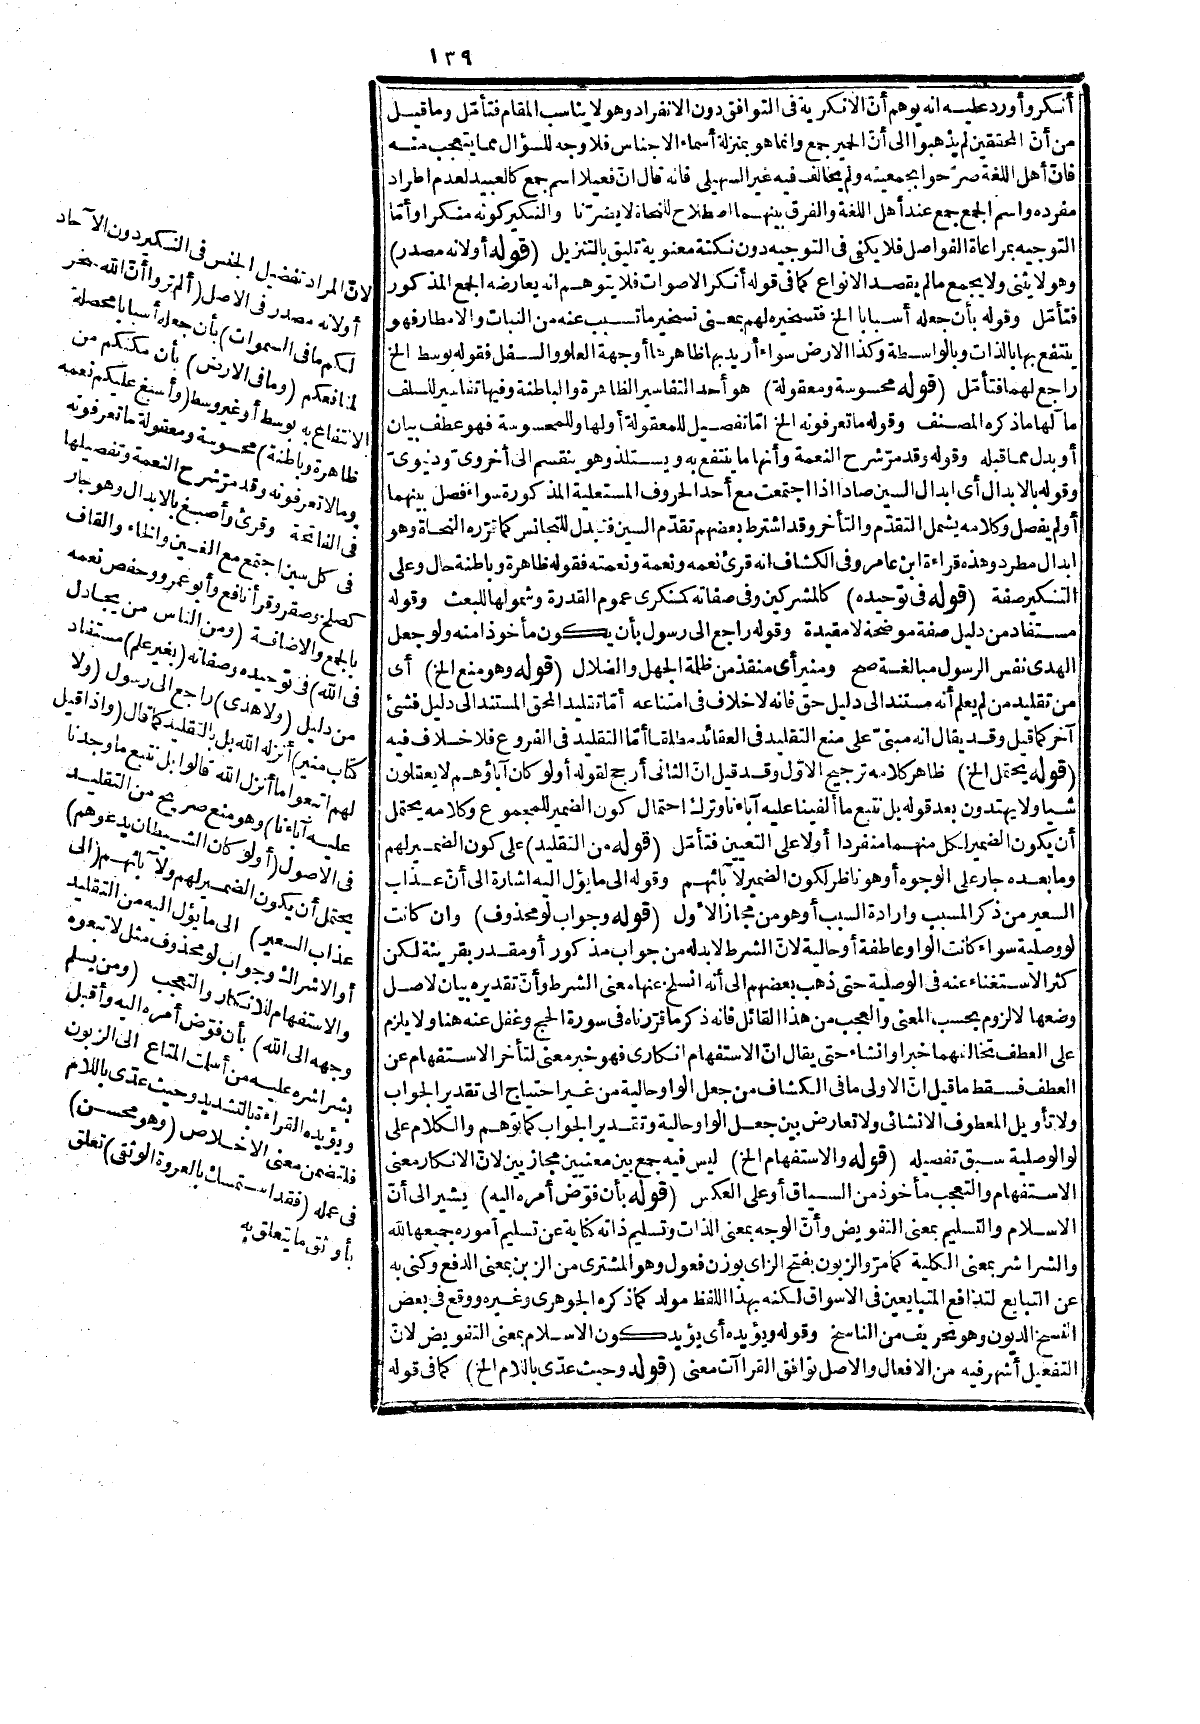 ١٣٩
أنكر وأورد عليه انه يوهم أنّ الانكرية فى التوافق دون الانفراد وهو لا يناسب المقام فتأمّل وما قيل
من أنّ المحققين لم يذهبوا الى أنّ الحمير جمع وانما هو بمنزلة أسماء الاجناس فلا وجه للسؤال مما يتعجب منه
فانّ أهل اللغة صرّحوا بجمعيته ولم يخالف فيه غير السهيلى فانه قال انّ فعيلا اسم جمع كالعبيد لعدم اطراد
مفرده واسم الجمع جمع عند أهل اللغة والفرق بينهما اصطلاح للنحاة لا يضرّنا والتنكير كونه منكرا وأمّا
التوجيه بمراعاة الفواصل فلا يكفى فى التوجيه دون نكتة معنوية تليق بالتنزيل (قوله أولانه مصدر)
وهو لا يثنى ولا يجمع ما لم يقصد الانواع كما فى قوله أنكر الاصوات فلا يتوهم انه يعارضه الجمع المذكور
فتأمّل وقوله بأن جعله أسبابا الخ فتسخيره لهم بمعنى تسخير ما تسبب عنه من النبات والامطار فهو
ينتفع بها بالذات وبالواسطة وكذا الارض سواء أريد بها ظاهرها أوجهة العلو والسفل فقوله بوسط الخ
راجع لهما فتأمّل (قوله محسوسة ومعقولة) هو أحد التفاسير الظاهرة والباطنة وفيها تفاسير للسلف
مآلها ما ذكره المصنف وقوله ما تعرفونه الخ امّا تفصيل للمعقولة أولها وللمحسوسة فهو عطف بيان
أو بدل مما قبله وقوله وقد مرّ شرح النعمة وأنها ما ينتفع به ويستلذ وهو ينقسم الى أخروىّ ودنيوىّ
وقوله بالابدال أى ابدال السين صادا اذا اجتمعت مع أحد الحروف المستعلية المذكورة سواء فصل بينهما
أو لم يفصل وكلامه يشمل التقدّم والتأخر وقد اشترط بعضهم تقدّم السين فتبدل للتجانس كما قرّره النحاة وهو
ابدال مطرد وهذه قراءة ابن عامر وفى الكشاف انه قرئ نعمه ونعمة ونعمته فقوله ظاهرة وباطنة حال وعلى
التنكير صفة (قوله فى توحيده) كالمشركين وفى صفاته كمنكرى عموم القدرة وشمولها للبعث وقوله
مستفاد من دليل صفة موضحة لا مقيدة وقوله راجع الى رسول بأن يكون مأخوذا منه ولو جعل
الهدى نفس الرسول مبالغة صح ومنير أى منقذ من ظلمة الجهل والضلال (قوله وهو منع الخ) أى
من تقليد من لم يعلم أنه مستند الى دليل حق فانه لا خلاف فى امتناعه أمّا تقليد المحق المستند الى دليل فشئ
آخر كما قيل وقد يقال انه مبنىّ على منع التقليد فى العقائد مطلقا أمّا التقليد فى الفروع فلا خلاف فيه
(قوله يحتمل الخ) ظاهر كلامه ترجيح الاوّل وقد قيل انّ الثانى أرجح لقوله أولو كان آباؤهم لا يعقلون
شيأ ولا يهتدون بعد قوله بل نتبع ما ألفينا عليه آباءنا وترك احتمال كون الضمير للمجموع وكلامه يحتمل
أن يكون الضمير لكل منهما منفردا أولا على التعيين فتأمّل (قوله من التقليد) على كون الضمير لهم
وما بعده جار على الوجوه أو هو ناظر لكون الضمير لآبائهم وقوله الى ما يؤل اليه اشارة الى أنّ عذاب
السعير من ذكر المسبب وارادة السبب أو هو من مجاز الاول (قوله وجواب لو محذوف) وان كانت
لو وصلية سواء كانت الواو عاطفة أو حالية لانّ الشرط لا بد له من جواب مذكور أو مقدر بقرينة لكن
كثر الاستغناء عنه فى الوصلية حتى ذهب بعضهم الى أنه انسلخ عنها معنى الشرط وأنّ تقديره بيان لاصل
وضعها لا لزوم بحسب المعنى والعجب من هذا القائل فانه ذكر ما قرّرناه فى سورة الحج وغفل عنه هنا ولا يلزم
على العطف تخالفهما خبرا وانشاء حتى يقال انّ الاستفهام انكارى فهو خبر معنى لتأخر الاستفهام عن
العطف فسقط ما قيل انّ الاولى ما فى الكشاف من جعل الواو حالية من غير احتياج الى تقدير الجواب
ولا تأويل المعطوف الانشائى ولا تعارض بين جعل الواو حالية وتقدير الجواب كما توهم والكلام على
لو الوصلية سبق تفصيله (قوله والاستفهام الخ) ليس فيه جمع بين معنيين مجازيين لانّ الانكار معنى
الاستفهام والتعجب مأخوذ من السياق أو على العكس (قوله بأن فوّض أمره اليه) يشير الى أنّ
الاسلام والتسليم بمعنى التفويض وأنّ الوجه بمعنى الذات وتسليم ذاته كناية عن تسليم أموره جميعها لله
والشراشر بمعنى الكلية كما مرّ والزبون بفتح الزاى بوزن فعول وهو المشترى من الزبن بمعنى الدفع وكنى به
عن التبايع لتدافع المتبايعين فى الاسواق لكنه بهذا اللفظ مولد كما ذكره الجوهرى وغيره ووقع فى بعض
النسخ الديون وهو تحريف من الناسخ وقوله ويؤيده أى يؤيد كون الاسلام بمعنى التفويض لانّ
التفعيل أشهر فيه من الافعال والاصل توافق القراآت معنى (قوله وحيث عدّى باللام الخ) كما فى قوله
لانّ المراد تفضيل الجنس فى النكير دون الآحاد
أولانه مصدر فى الاصل (ألم تروا أنّ الله سخر
لكم ما فى السموات) بأن جعله أسبابا محصلة
لمنافعكم (وما فى الارض) بأن مكنكم من
الانتفاع به بوسط أو غير وسط (وأسبغ عليكم نعمه
ظاهرة وباطنة) محسوسة ومعقولة ما تعرفونه
وما لا تعرفونه وقد مرّ شرح النعمة وتفصيلها
فى الفاتحة وقرئ وأصبغ بالابدال وهو جار
فى كل سين اجتمع مع الغين والخاء والقاف
كصلخ وصقر وقرأ نافع وأبو عمرو وحفص نعمه
بالجمع والاضافة (ومن الناس من يجادل
فى الله) فى توحيده وصفاته (بغير علم) مستفاد
من دليل (ولا هدى) راجع الى رسول (ولا
كتاب منير) أنزله الله بل بالتقليد كما قال (واذا قيل
لهم اتبعوا ما أنزل الله قالوا بل نتبع ما وجدنا
عليه آباءنا) وهو منع صريح من التقليد
فى الاصول (أولو كان الشيطان يدعوهم)
يحتمل أن يكون الضمير لهم ولآبائهم (الى
عذاب السعير) الى ما يؤل اليه من التقليد
أو الاشراك وجواب لو محذوف مثل لاتبعوه
والاستفهام للانكار والتعجب (ومن يسلم
وجهه الى الله) بأن فوّض أمره اليه وأقبل
بشراشره عليه من أسلت المتاع الى الزبون
ويؤيده القراءة بالتشديد وحيث عدّى باللام
فلتضمن معنى الاخلاص (وهو محسن)
فى عمله (فقد استمسك بالعروة الوثقى) تعلق
بأوثق ما يتعلق به